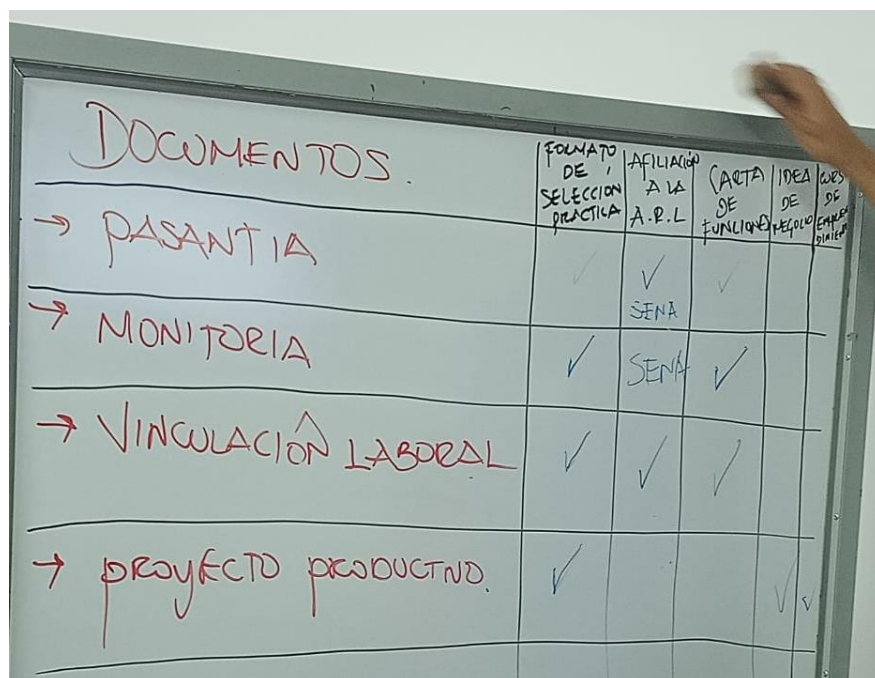 DOCUMENTOS.
FORMATO DE SELECCION PRACTICA
AFILIACIÓN A LA A.R.L
CARTA DE FUNCIONES
IDEA DE NEGOCIO
DE
→ PASANTIA ✓ ✓ SENA ✓
→ MONITORIA ✓ SENA ✓
→ VINCULACIÓN LABORAL ✓ ✓ ✓
→ PROYECTO PRODUCTIVO. ✓ ✓ ✓